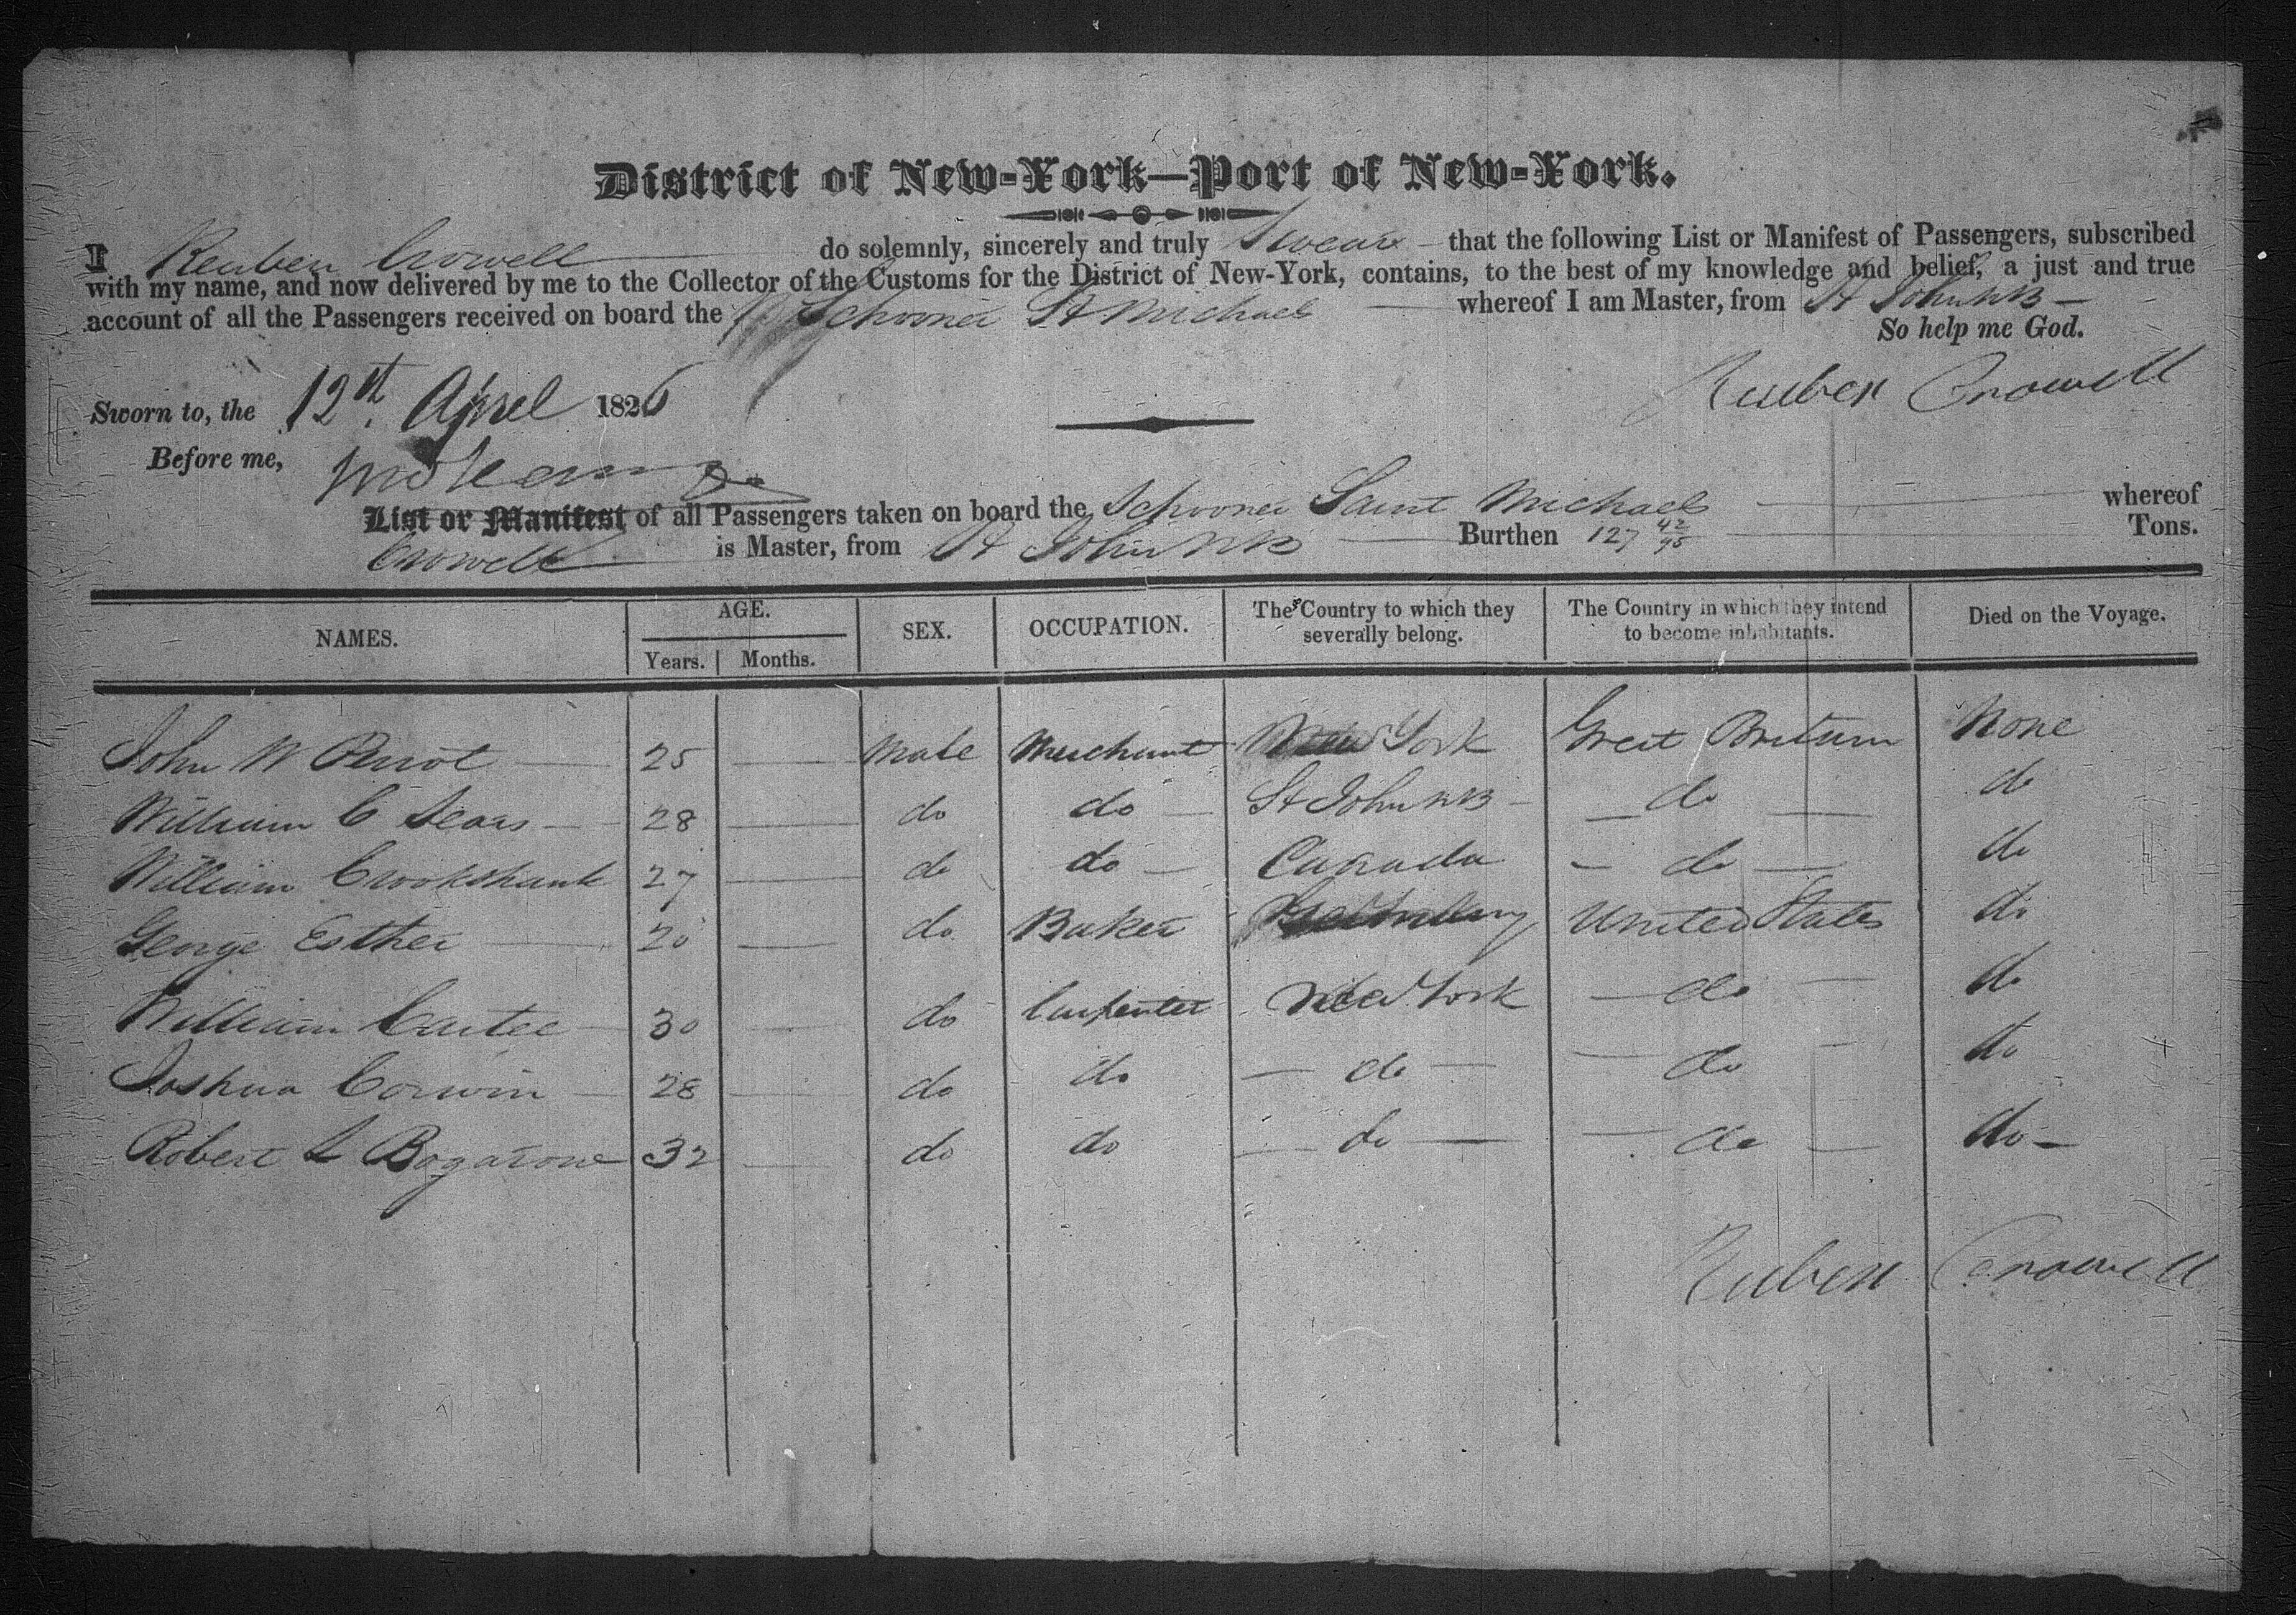 District of New-York—Port of New-York.
I Reuben Crowell do solemnly, sincerely and truly Swear that the following List or Manifest of Passengers, subscribed
with my name, and now delivered by me to the Collector of the Customs for the District of New-York, contains, to the best of my knowledge and belief, a just and true
account of all the Passengers received on board the Schooner St Michaels whereof I am Master, from St John NB
So help me God.
Sworn to, the 12th April 1826 Reuben Crowell
Before me,
List or Manifest of all Passengers taken on board the Schooner Saint Michaels whereof
Crowell is Master, from St John NB Burthen 127 42/95 Tons.
NAMES. AGE. Years. Months. SEX. OCCUPATION. The Country to which they severally belong. The Country in which they intend to become inhabitants. Died on the Voyage.
John W 25 Male Merchant New York Great Britain None
William C Sears 28 do do St John NB do do
William Crookshank 27 do do Canada do do
George Esther 20 do Baker United States do
William Carter 30 do Carpenter New York do do
Joshua Corwin 28 do do do do do
Robert S 32 do do do do do
Reuben Crowell